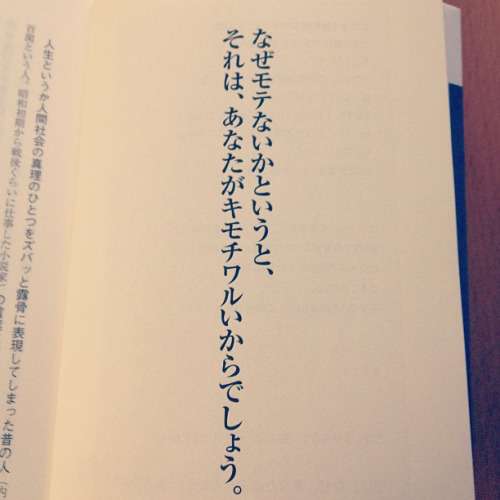 なぜモテないかというと、
それは、あなたがキモチワルいからでしょう。
人生というか人間社会の真理のひとつをズバッと露骨に表現してしまった昔の人
百閒という人。昭和初期から戦後ぐらいに仕事した小説家）の言葉